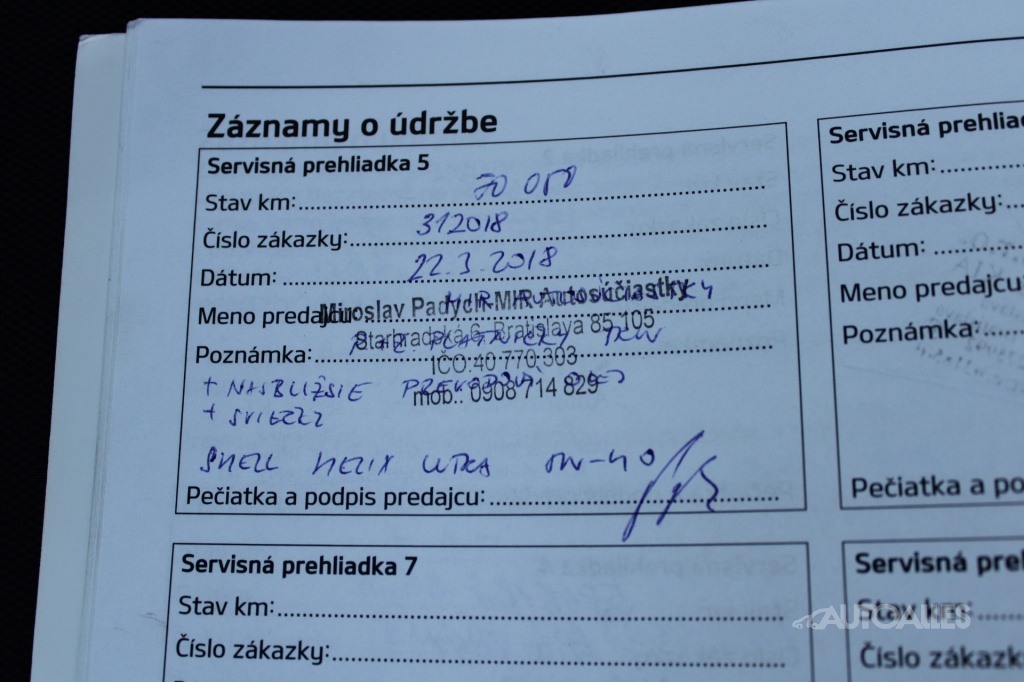 Záznamy o údržbe
Servisná prehliadka 5
Stav km: 70 000
Číslo zákazky: 312018
Dátum: 22.3.2018
Meno predajcu:
Miroslav Padych-MIR Autosúčiastky
Starhradská 6, Bratislava 85 105
Poznámka: PLATNIČKY TRW
IČO:40 770 303
+ NAJBLIŽSIE PREVODOVÝ OLEJ
mob.: 0908 714 829
+ SVIEČKY
SHELL HELIX ULTRA 5W-40
Pečiatka a podpis predajcu:
Servisná prehliadka 7
Stav km:
Číslo zákazky:
Servisná
Stav km:
Číslo zákazky:
Dátum:
Meno predajcu
Poznámka:
Pečiatka a
Servisná
Stav km:
Číslo
AUTOALLES